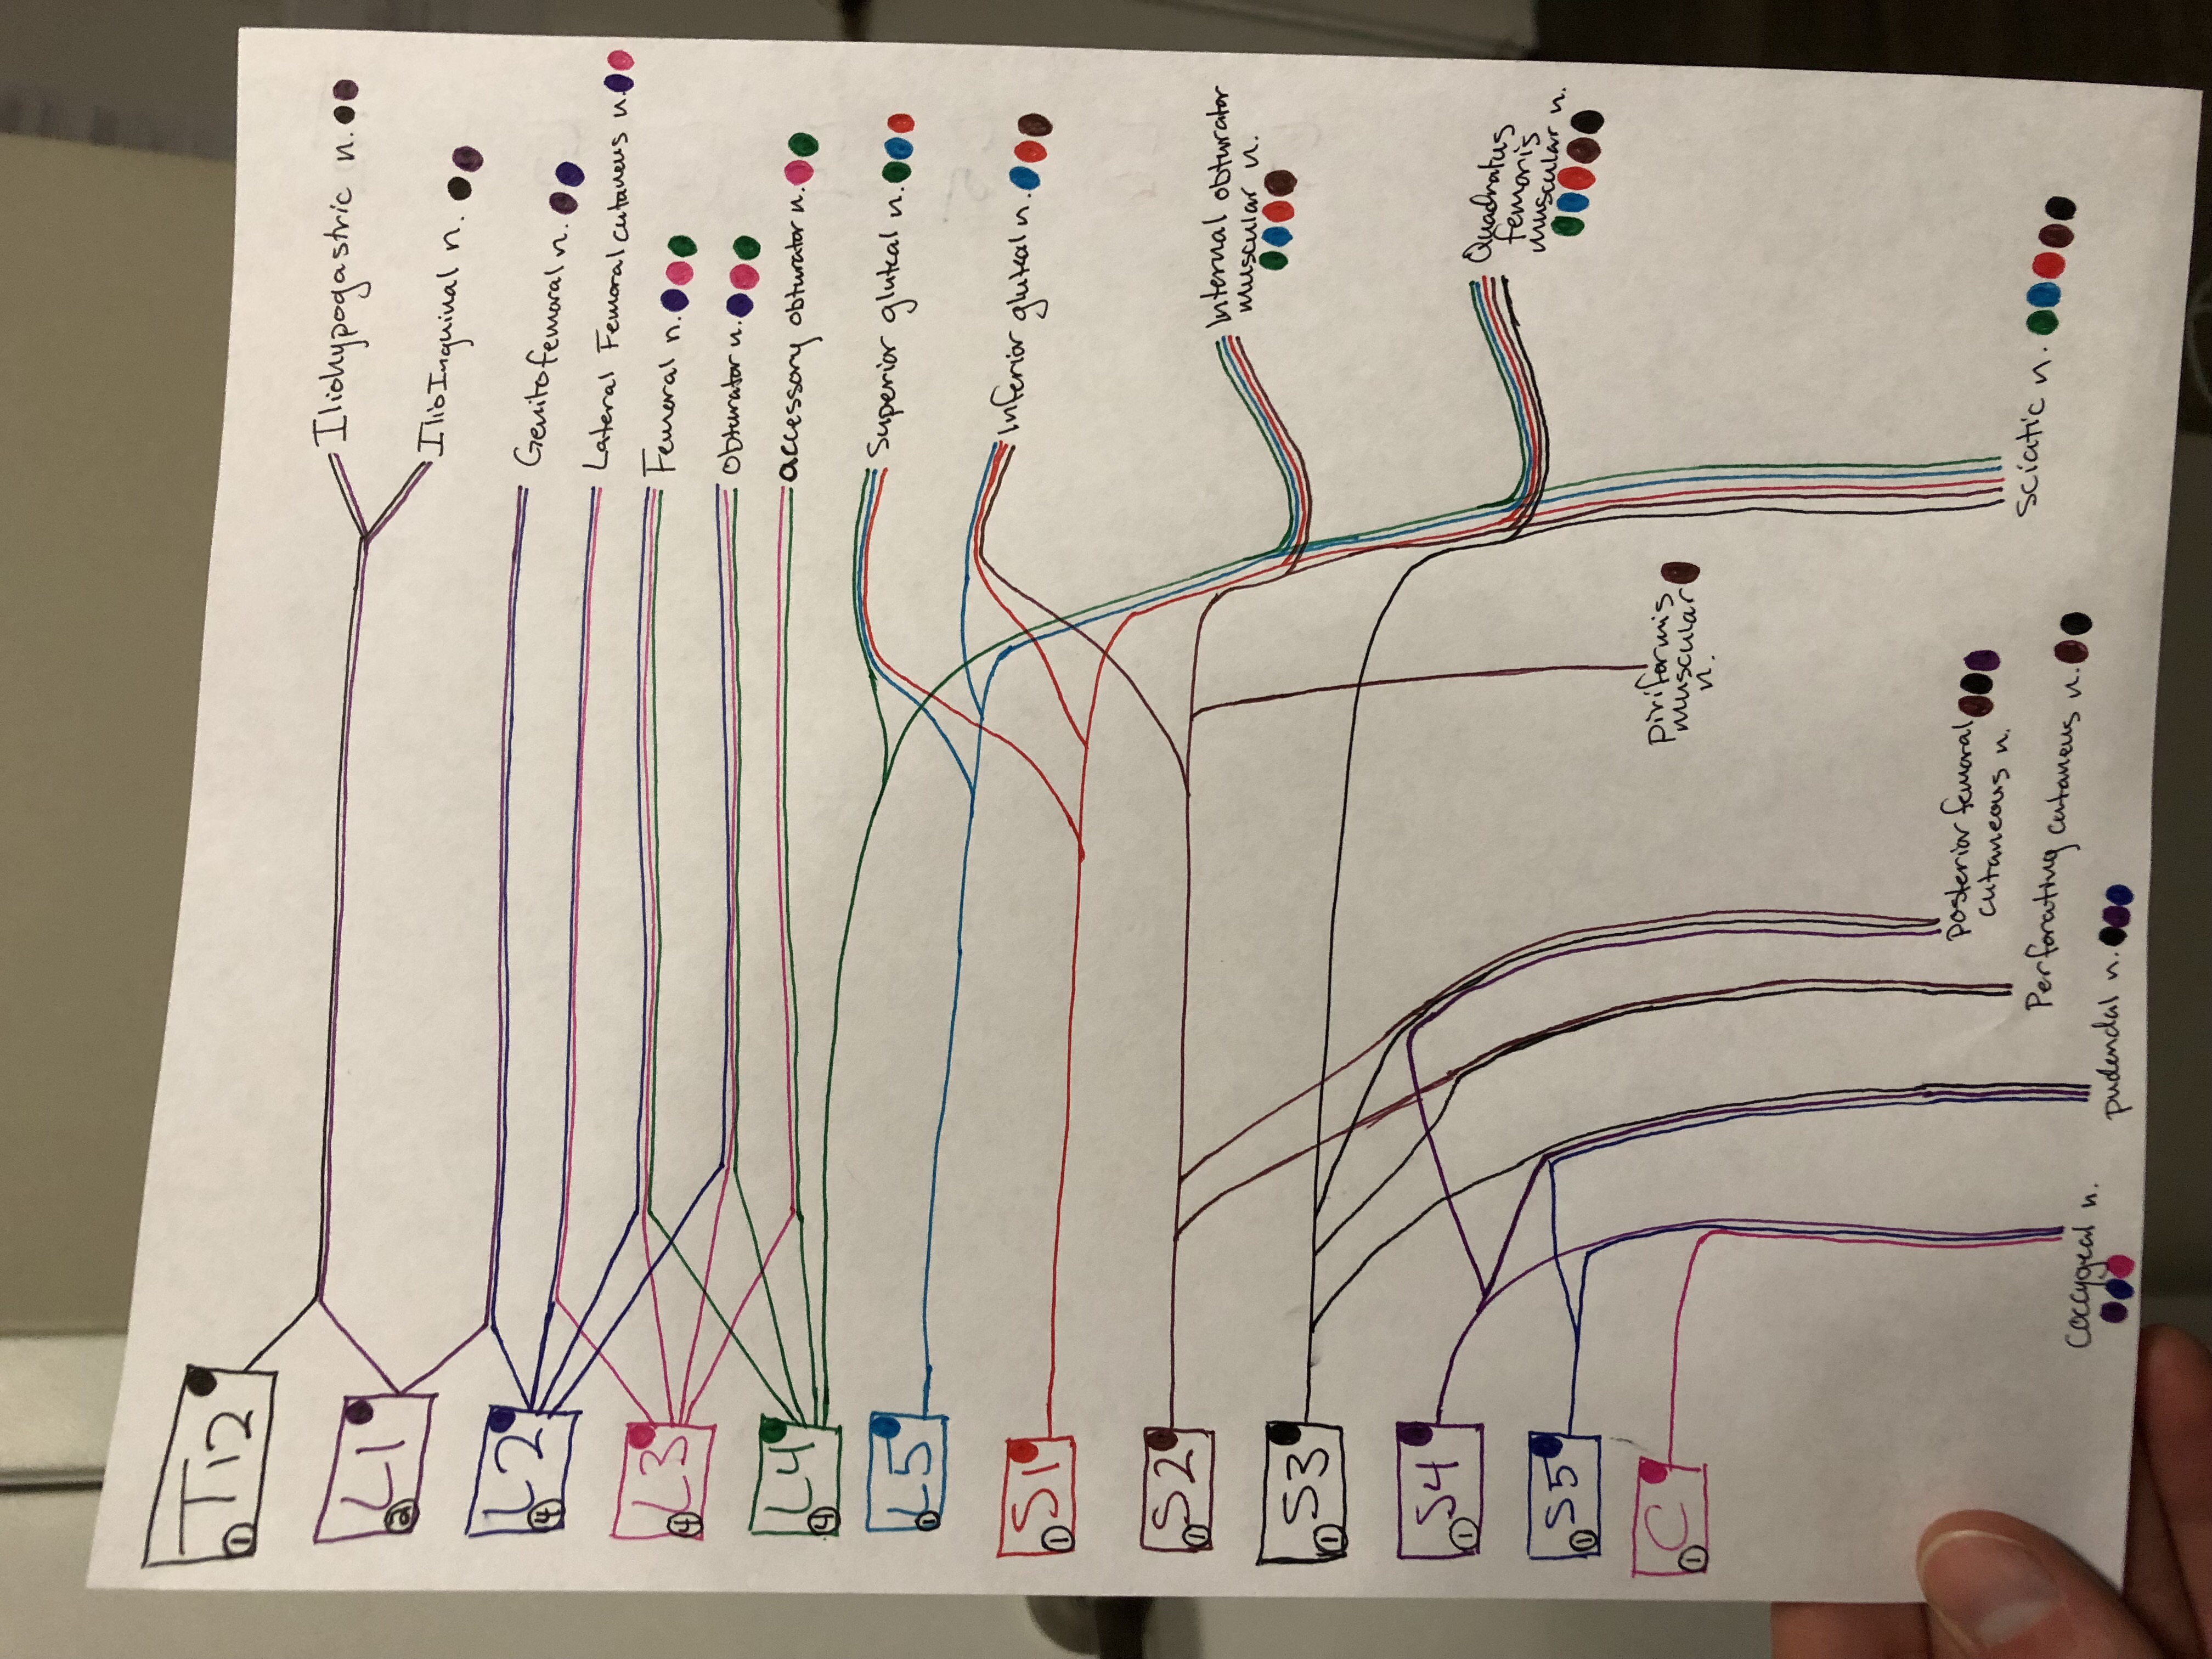 T12
1
L1
2
L2
4
L3
4
L4
4
L5
1
S1
1
S2
1
S3
1
S4
1
S5
1
C
1
Iliohypogastric n.
IlioInguinal n.
Genitofemoral n.
Lateral Femoral cutaneus n.
Femoral n.
obturator n.
accessory obturator n.
Superior gluteal n.
Inferior gluteal n.
Internal obturator
muscular n.
Quadratus
femoris
muscular n.
piriformis
muscular
n.
posterior femoral
cutaneous n.
Perforating cutaneus n.
sciatic n.
coccygeal n.
pudendal n.